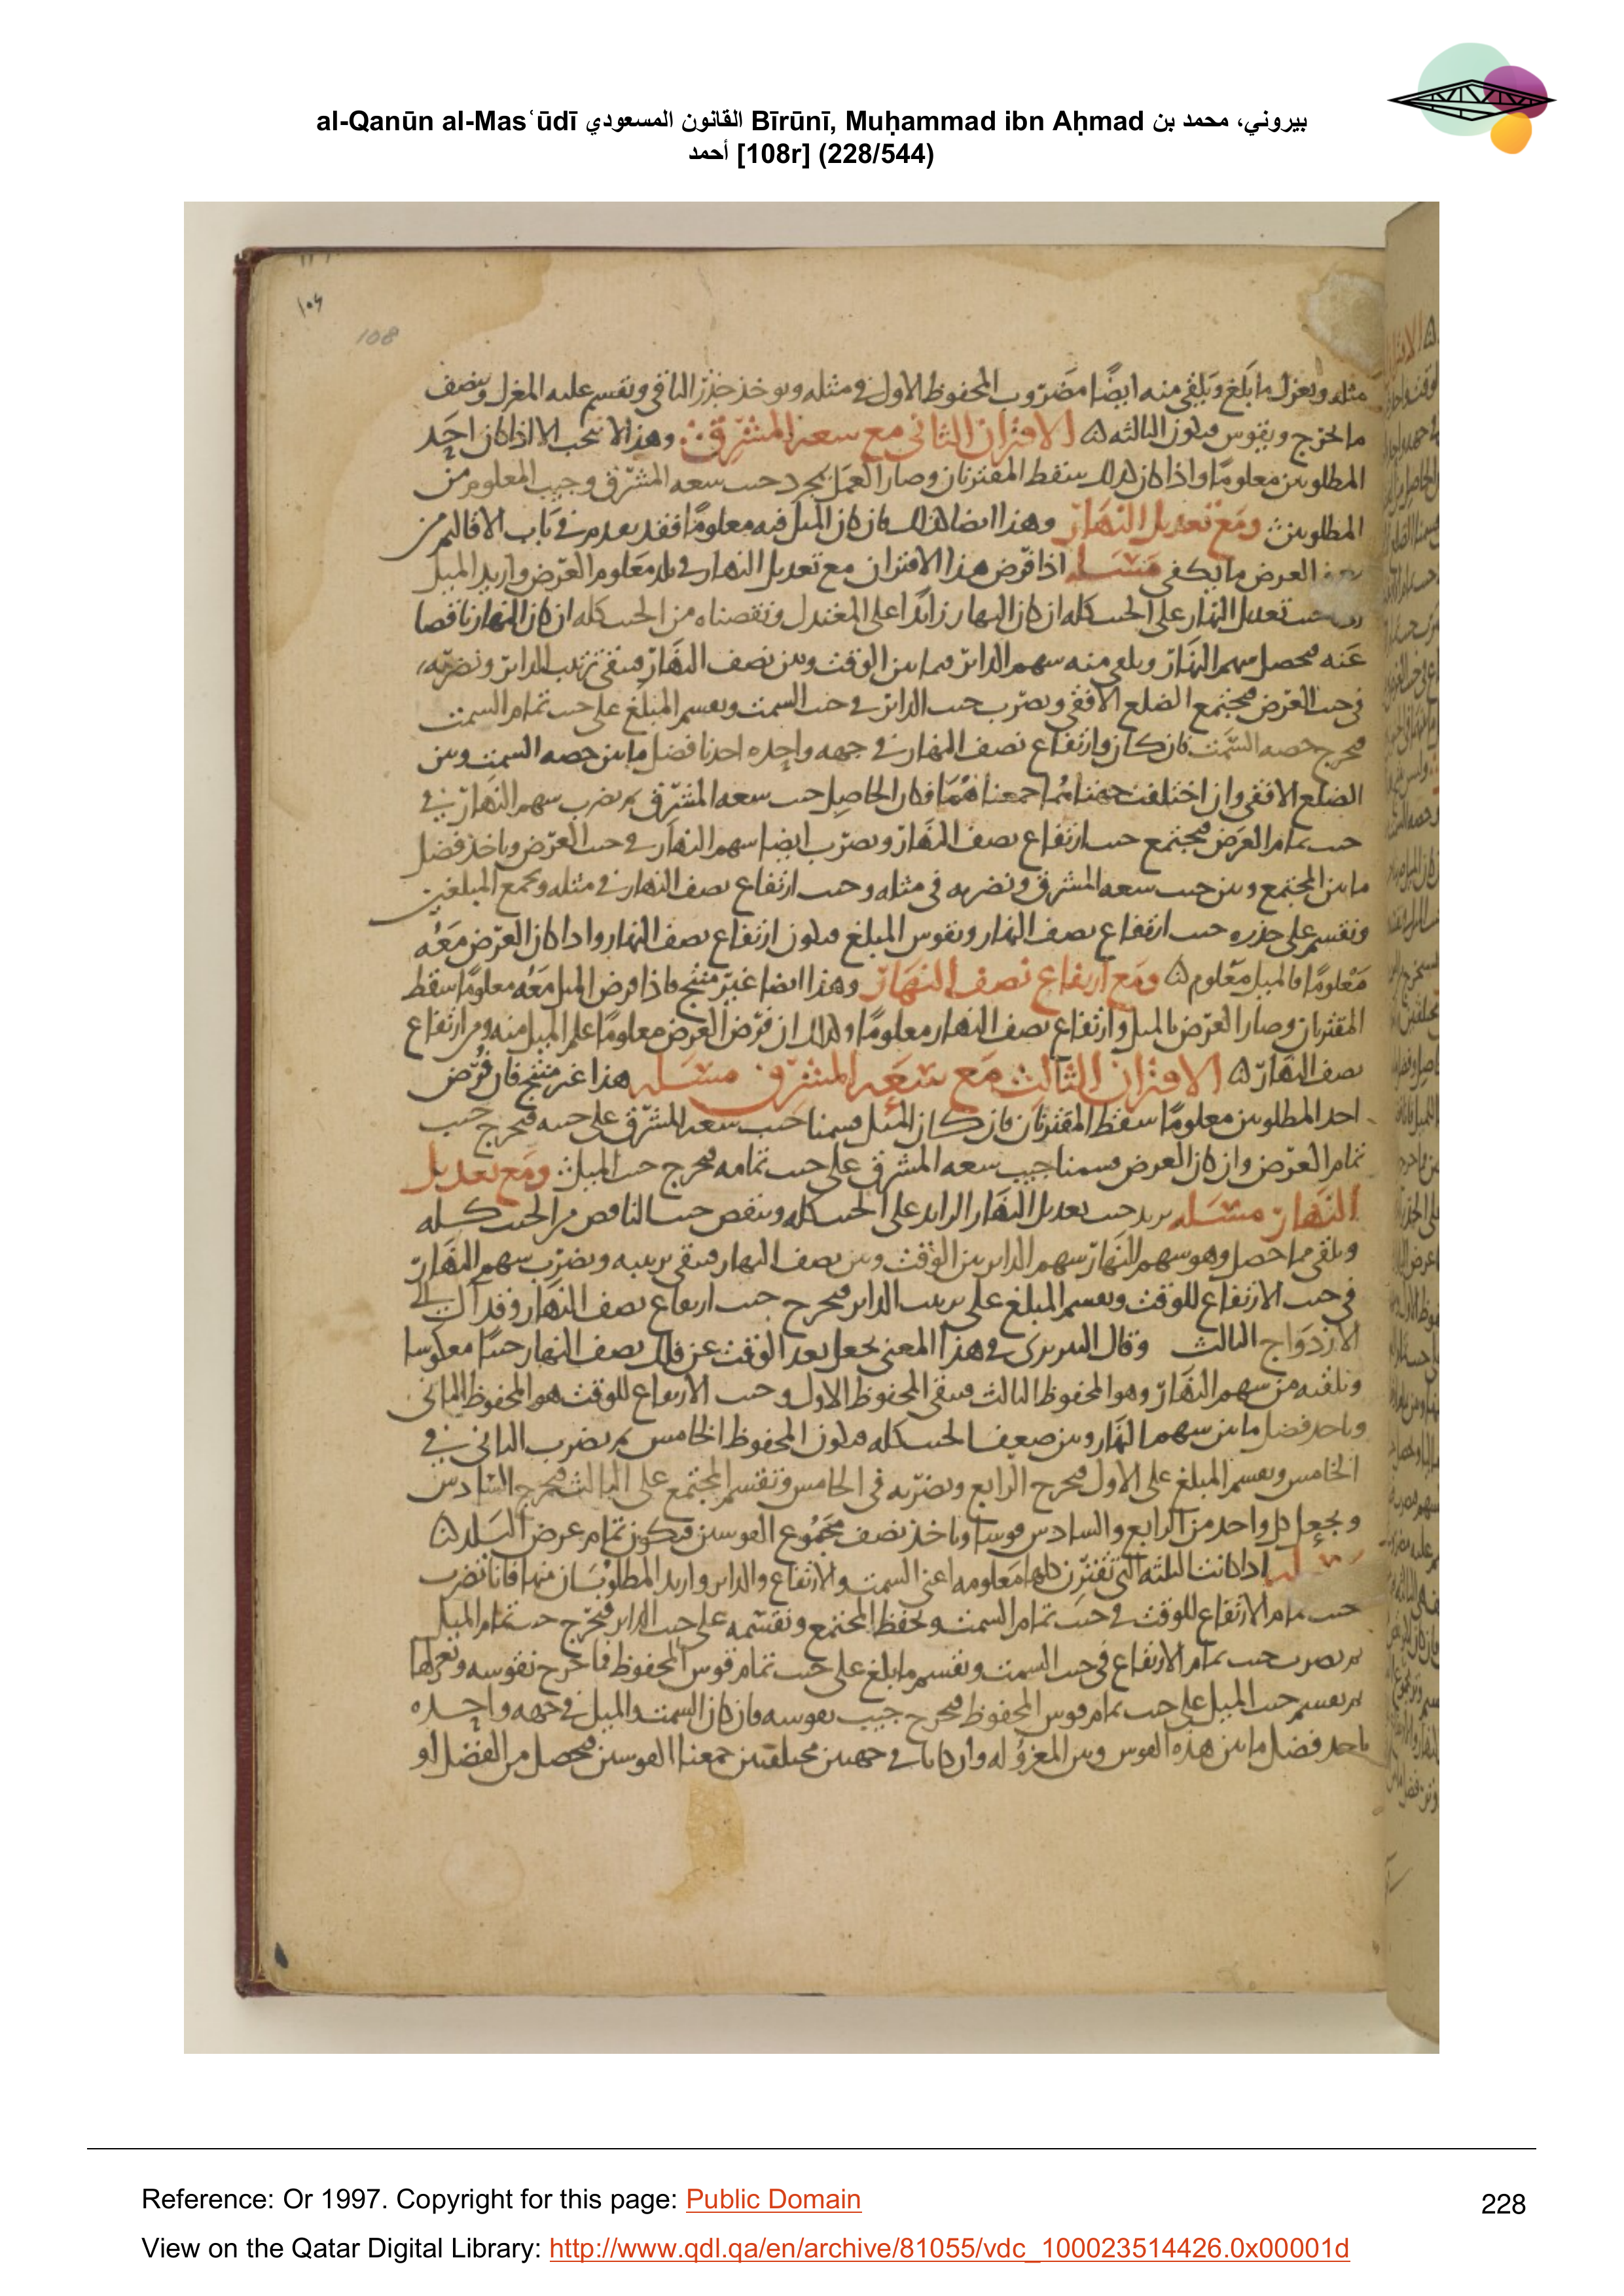 al-Qanūn al-Mas‘ūdī القانون المسعودي Bīrūnī, Muḥammad ibn Aḥmad بيروني، محمد بن
أحمد [108r] (228/544)
108
مثله ويعزل ما بلغ ويلقى منه ايضًا مضروب المحفوظ الاول في مثله ويوخذ جذر الباقي ونقسم عليه المعزل وينصف
ما يخرج ويقوس فيكون الثالثه ه الاقتران الثاني مع سعة المشرق وهذا لا يجب الا اذا كان احد
المطلوبين معلومًا واذا كان كذلك سقط المقترنان وصار العمل بمجرد جيب سعه المشرق وجيب المعلوم من
المطلوبين ومع تعديل النهار وهذا ايضا كذلك فان كان الميل فيه معلومًا فقد تقدم في باب الاقاليم من
العرض ما يكفي مثله اذا فرض هذا الاقتران مع تعديل النهار في بلد معلوم العرض واريد الميل
جيب تعديل النهار على الجيب كله ان كان النهار زايدًا على المعتدل ونقصناه من الجيب كله ان كان النهار ناقصا
عنه فيحصل سهم النهار ويلقى منه سهم الداير فيما بين الوقت وبين نصف النهار فيبقى ترتيب الداير ونضربه
في جيب العرض فيجتمع الضلع الافقي ونضرب جيب الداير في جيب السمت ونقسم المبلغ على جيب تمام السمت
فيخرج حصه السمت فان كان وارتفاع نصف النهار في جهه واحده اخذنا فضل ما بين حصه السمت وبين
الضلع الافقي وان اختلفت جهتاهما جمعناهما فكان الحاصل جيب سعه المشرق ثم نضرب سهم النهار في
جيب تمام العرض فيجتمع جيب ارتفاع نصف النهار ونضرب ايضا سهم النهار في جيب العرض وناخذ فضل
ما بين المجتمع وبين جيب سعه المشرق ونضربه في مثله وجيب ارتفاع نصف النهار في مثله ونجمع المبلغين
ونقسم على جذره جيب ارتفاع نصف النهار ونقوس المبلغ فيكون ارتفاع نصف النهار واذا كان العرض معه
معلومًا فالميل معلوم ه ومع ارتفاع نصف النهار وهذا ايضا غير منتج فاذا فرض الميل معه معلومًا سقط
المقترنان وصار العرض بالميل وارتفاع نصف النهار معلومًا وكذلك ان فرض العرض معلومًا علم الميل منه ومن ارتفاع
نصف النهار ه الاقتران الثالث مع سعه المشرق مثله هذا غير منتج فان فرض
احد المطلوبين معلومًا سقط المقترنان فان كان الميل قسمنا جيب سعه المشرق على جيبه فيخرج جيب
تمام العرض وان كان العرض قسمنا جيب سعه المشرق على جيب تمامه فيخرج جيب الميل ومع تعديل
النهار مثله يزيد جيب تعديل النهار الزايد على الجيب كله وينقص جيب الناقص من الجيب كله
ويلقى مما حصل وهو سهم النهار سهم الداير بين الوقت وبين نصف النهار فيبقى ترتيبه ونضرب سهم النهار
في جيب الارتفاع للوقت ونقسم المبلغ على ترتيب الداير فيخرج جيب ارتفاع نصف النهار وقد آل الى
الازدواج الثالث وقال النيريزي في هذا المعنى يجعل بعد الوقت عن فلك نصف النهار جيبًا معكوسا
ونلقيه من سهم النهار وهو المحفوظ الثالث فيبقى المحفوظ الاول وجيب الارتفاع للوقت هو المحفوظ الثاني
وناخذ فضل ما بين سهم النهار وبين ضعف الجيب كله فيكون المحفوظ الخامس ثم نضرب الثاني في
الخامس ونقسم المبلغ على الاول فيخرج الرابع ونضربه في الخامس ونقسم المجتمع على الثالث فيخرج السادس
ونجعل كل واحد من الرابع والسادس قوسا وناخذ نصف مجموع القوسين فيكون تمام عرض البلد ه
اذا كانت الثلثه التي تقترن كلها معلومه اعني السمت والارتفاع والداير واريد المطلوبان منها فانا نضرب
جيب تمام الارتفاع للوقت في جيب تمام السمت ونحفظ المجتمع ونقسمه على جيب الداير فيخرج جيب تمام الميل
ثم نضرب جيب تمام الارتفاع في جيب السمت ونقسم ما بلغ على جيب تمام قوس المحفوظ فما خرج نقوسه ونعزلها
ثم نقسم جيب الميل على جيب تمام قوس المحفوظ فيخرج جيب نقوسه فان كان السمت والميل في جهه واحده
ناخذ فضل ما بين هذه القوس وبين المعزوله وان كانا في جهتين مختلفتين جمعنا القوسين فيحصل من الفضل او
Reference: Or 1997. Copyright for this page: Public Domain
228
View on the Qatar Digital Library: http://www.qdl.qa/en/archive/81055/vdc_100023514426.0x00001d